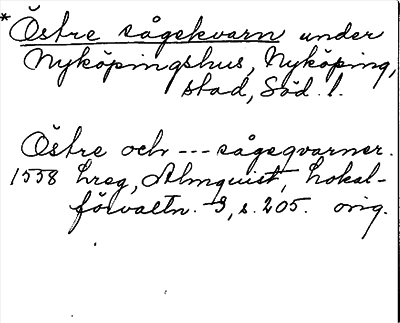 *Östre sågekvarn under
Nyköpingshus, Nyköping,
stad, Söd. l.
Östre och --- sågeqvarner.
1558 hreg, Almquist, Lokal-
förvaltn. 3, s. 205. orig.